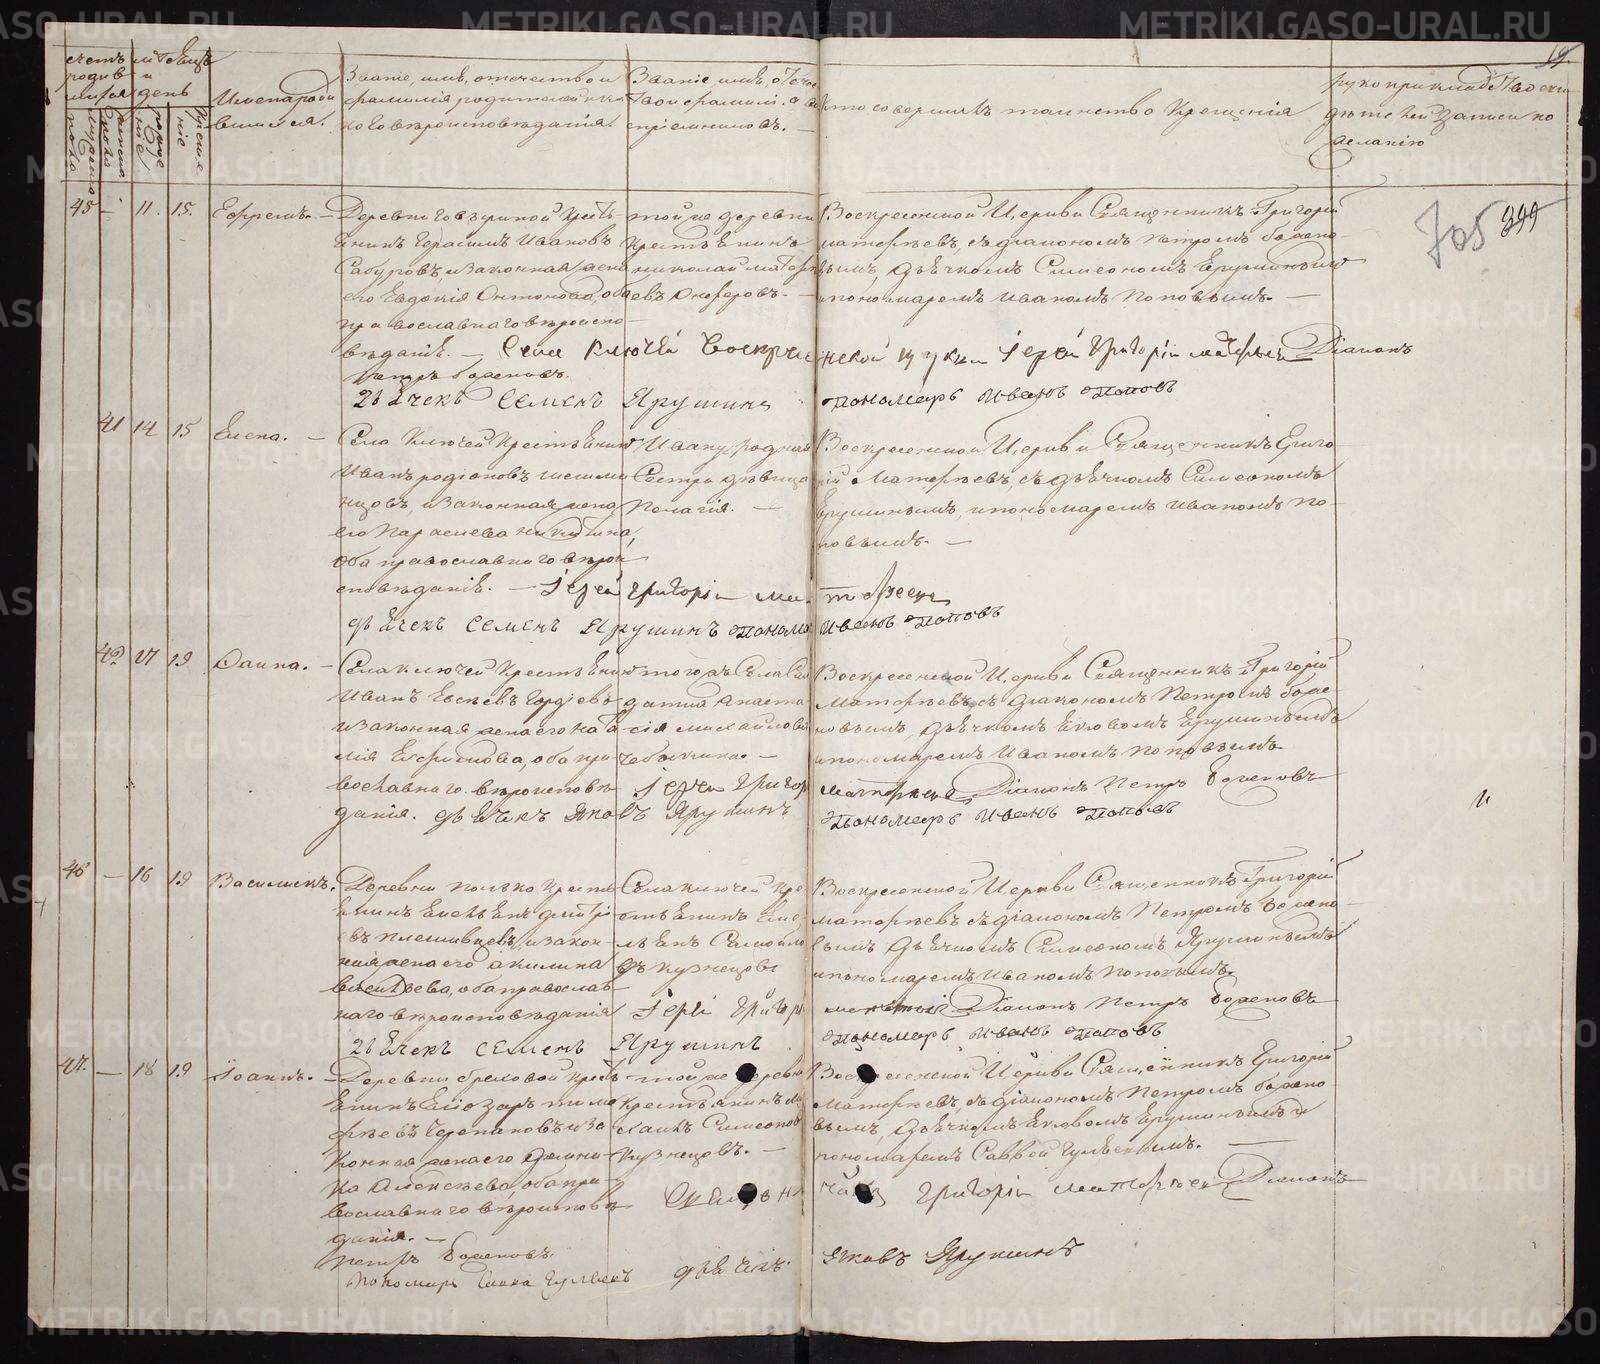 METRIKI.GASO-URAL.RU
19.
Счетъ родив
шихся
Мѣсяцъ
и
день
Имена роди
вшихся.
Званіе, имя, отечество и
фамилія родителей и ка
кого вѣроисповѣданія.
Званіе, имя, отече
ство и фамилія во
спріемниковъ.
Кто совершилъ таинство Крещенія
Рукоприкладство сви
дѣтелей записи по
желанію
Мужеска
пола
Женска
пола
рожде
ніе
креще
ніе
45 – 11. 15. Ефремъ. –
Деревни Говзуриной Кресть-
янинъ Герасимъ Ивановъ
Сабуровъ, и законная жена
его Евдокія Антонова, оба
православнаго вѣроиспо-
вѣданія. –
той же деревни
Крестьянинъ
Николай Матвѣ
евъ Анферовъ. –
Воскресенской Церкви Священникъ Григорій
Матѳеевъ, съ діакономъ Петромъ Божено-
вымъ, дьячкомъ Симеономъ Ярушинымъ
и пономаремъ Иваномъ Поповымъ. –
705 399
Села Ключей Воскресенской церкви Іерей Григорій Матѳеевъ Діаконъ
Петръ Боженовъ.
дьячекъ Семенъ Ярушинъ пономарь Иванъ Поповъ
41 14 15 Елена. –
Села Ключей Крестьянинъ
Иванъ Родіоновъ Шешми
нцовъ, и законная жена
его Параскева Никитина,
оба православнаго вѣрои
сповѣданія. –
Ивану родная
Сестра дѣвица
Пелагія. –
Воскресенской Церкви Священникъ Григо-
рій Матѳеевъ, съ дьячкомъ Симеономъ
Ярушинымъ, и пономаремъ Иваномъ По-
повымъ. –
Іерей Григорій Матѳеевъ
дьячекъ Семенъ Ярушинъ пономарь Иванъ Поповъ
42 17 19 Фаина. –
Села Ключей Крестьянинъ
Иванъ Евсѣевъ Гордѣевъ
и законная жена его Ната
лія Елфимова, оба пра
вославнаго вѣроисповѣ
данія.
того жъ Села Сол
датка Анаста
сія Михайлова
Чебыкина. –
Воскресенской Церкви Священникъ Григорій
Матѳеевъ, съ діакономъ Петромъ Боже-
новымъ, дьячкомъ Яковомъ Ярушинымъ
и пономаремъ Иваномъ Поповымъ
Іерей Григорій Матѳеевъ Діаконъ Петръ Боженовъ
дьячекъ Яковъ Ярушинъ пономарь Иванъ Поповъ
46 – 16 19 Василискъ.
Деревни
Села Ключей Кре
стьянинъ
Кузнецовъ
Воскресенской Церкви Священникъ Григорій
Матѳеевъ съ діакономъ Петромъ Божено-
вымъ дьячкомъ Симеономъ Ярушинымъ
и пономаремъ Иваномъ Поповымъ
и закон-
ная жена его Акилина
оба православ-
наго вѣроисповѣданія
Іерей Григорій Діаконъ Петръ Боженовъ
дьячекъ Семенъ Ярушинъ пономарь Иванъ Поповъ
47. – 18 19 Іоаннъ. –
Деревни Бреховой Кресть-
янинъ Елиозаръ Тимо
фѣевъ Черепановъ и за
конная жена его Домни
ка Алексѣева, оба пра-
вославнаго вѣроисповѣ
данія. –
той же деревни
Крестьянинъ Ми
хаилъ Симеоновъ
Кузнецовъ. –
Воскресенской Церкви Священникъ Григорій
Матѳеевъ, съ діакономъ Петромъ Божено-
вымъ, дьячкомъ Яковомъ Ярушинымъ и
пономаремъ Саввой
Священникъ Григорій Матѳеевъ Діаконъ
Петръ Боженовъ.
дьячекъ Яковъ Ярушинъ
Пономарь Савва